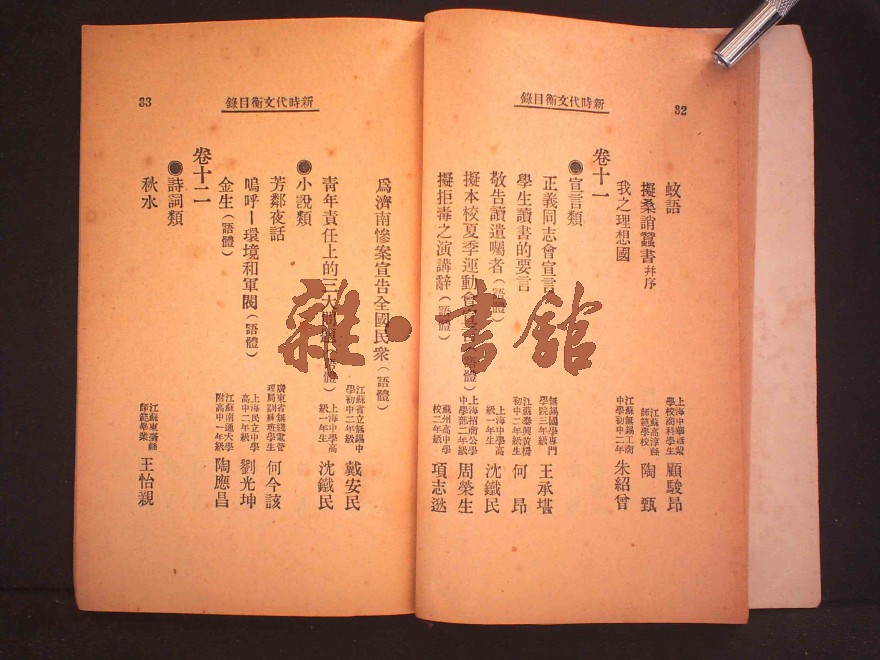 新時代文衡目錄
32
蚊語
上海中華職業學校商科學生
顧駿昂
擬桑誚蠶書并序
江蘇高淳縣師範學校
陶甄
我之理想國
江蘇無錫工商中學初中二年
朱紹曾
卷十一
●宣言類
正義同志會宣言
無錫國學專門學院三年級
王承堪
學生讀書的要言
江蘇泰興黃橋初中二年級
何昂
敬告讀遺囑者(語體)
上海中學高級一年生
沈鐵民
擬本校夏季運動會宣言(語體)
上海招商公學中學部二年級
周榮生
擬拒毒之演講辭(語體)
蘇州高中學校二年級
項志逖
新時代文衡目錄
33
爲濟南慘案宣告全國民衆(語體)
江蘇省立無錫中學初中二年級
戴安民
青年責任上的三大(語體)
上海中學高級一年生
沈鐵民
●小說類
芳鄰夜話
廣東省無綫電管理局訓練班學生
何今該
嗚呼—環境和軍閥(語體)
上海民立中學高中二年級
劉光坤
金生(語體)
江蘇南通大學附高中一年級
陶應昌
卷十二
●詩詞類
秋水
江蘇東臺縣師範畢業
王怡親
雜·書館